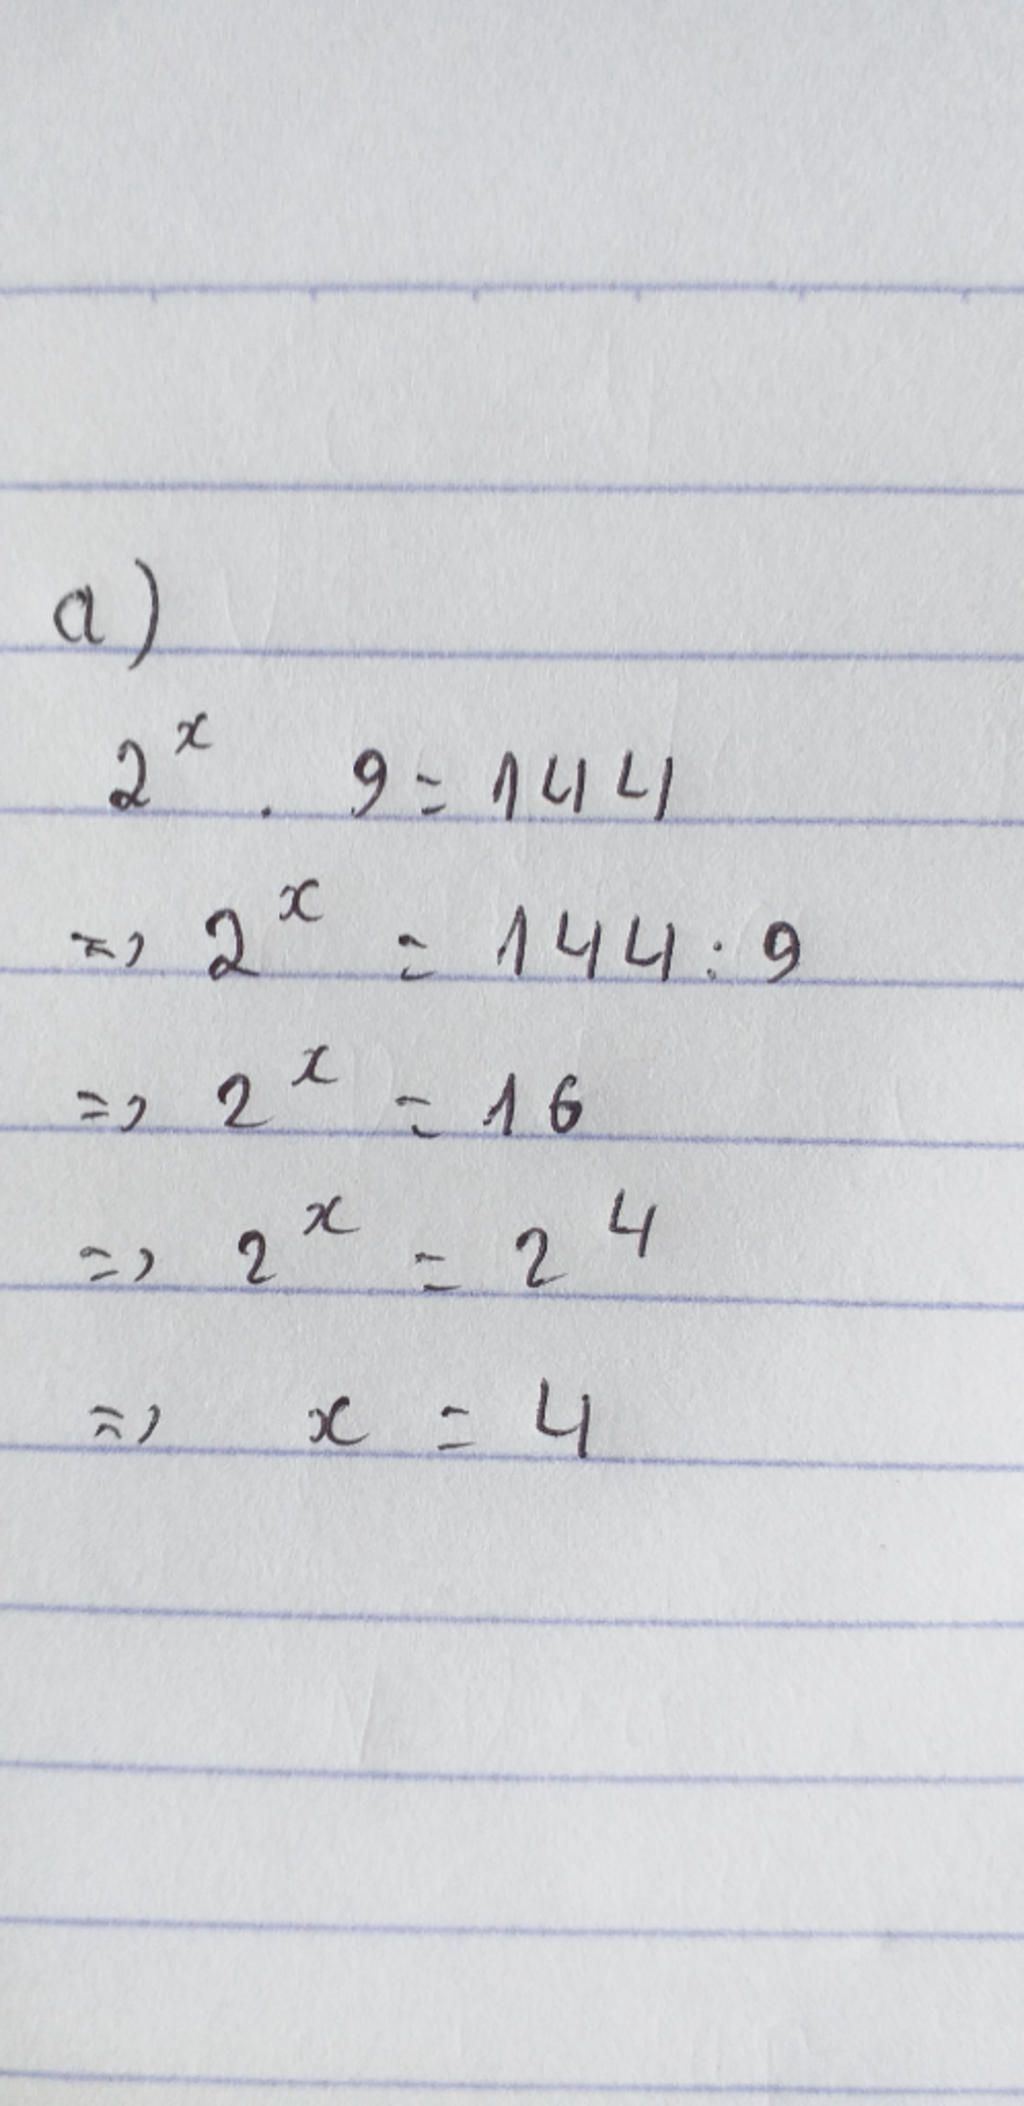 a)
2^x . 9 = 144
=> 2^x = 144 : 9
=> 2^x = 16
=> 2^x = 2^4
=> x = 4